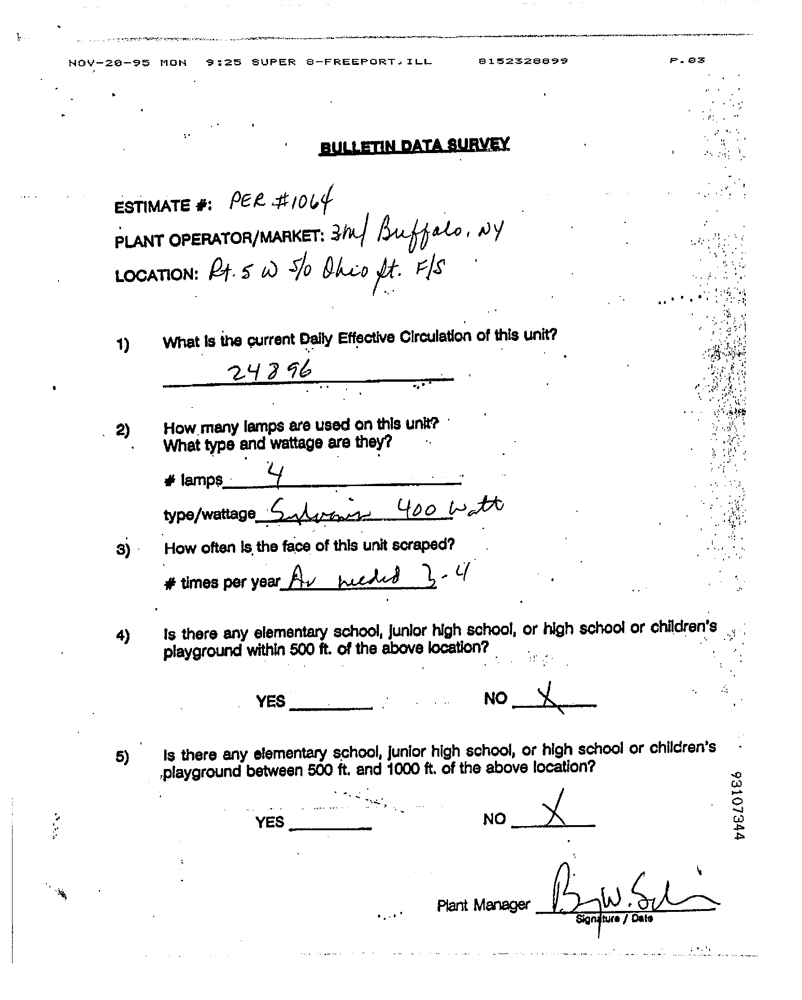 NOV-20-95 MON 9:25 SUPER 8-FREEPORT, ILL 8152328899 P.03
BULLETIN DATA SURVEY
ESTIMATE #: PER #1064
PLANT OPERATOR/MARKET: 3M/ Buffalo, NY
LOCATION: Rt. 5 W S/O Ohio St. F/S
1) What is the current Daily Effective Circulation of this unit?
24896
2) How many lamps are used on this unit?
What type and wattage are they?
# lamps 4
type/wattage 400 Watt
3) How often is the face of this unit scraped?
# times per year As needed 3-4
4) Is there any elementary school, junior high school, or high school or children's
playground within 500 ft. of the above location?
YES NO X
5) Is there any elementary school, junior high school, or high school or children's
playground between 500 ft. and 1000 ft. of the above location?
YES NO X
93107344
Plant Manager
Signature / Date